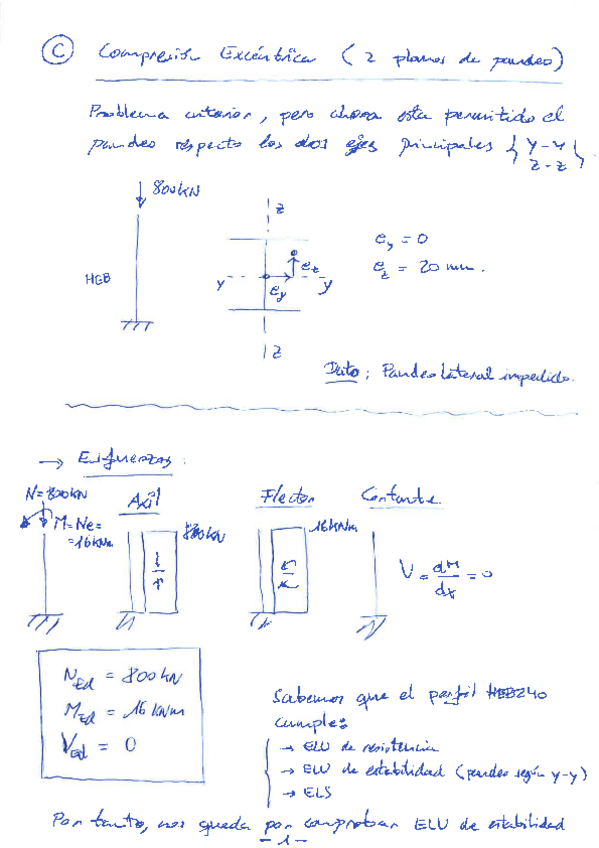 C Compresión Excéntrica (2 planos de pandeo)
Problema anterior, pero ahora está permitido el
pandeo respecto los dos ejes principales { y-y
z-z }
800kN
HEB
z
y
y
z
e_z
e_y
e_y = 0
e_z = 20 mm.
Dato: Pandeo lateral impedido.
→ Esfuerzos:
N=800kN
M=Ne=
=16kNm
Axil
800kN
Flector
16kNm
Cortante
V = dM/dx = 0
N_Ed = 800kN
M_Ed = 16kNm
V_Ed = 0
Sabemos que el perfil HEB240
cumple:
→ ELU de resistencia
→ ELU de estabilidad (pandeo según y-y)
→ ELS
Por tanto, nos queda por comprobar ELU de estabilidad
-1-